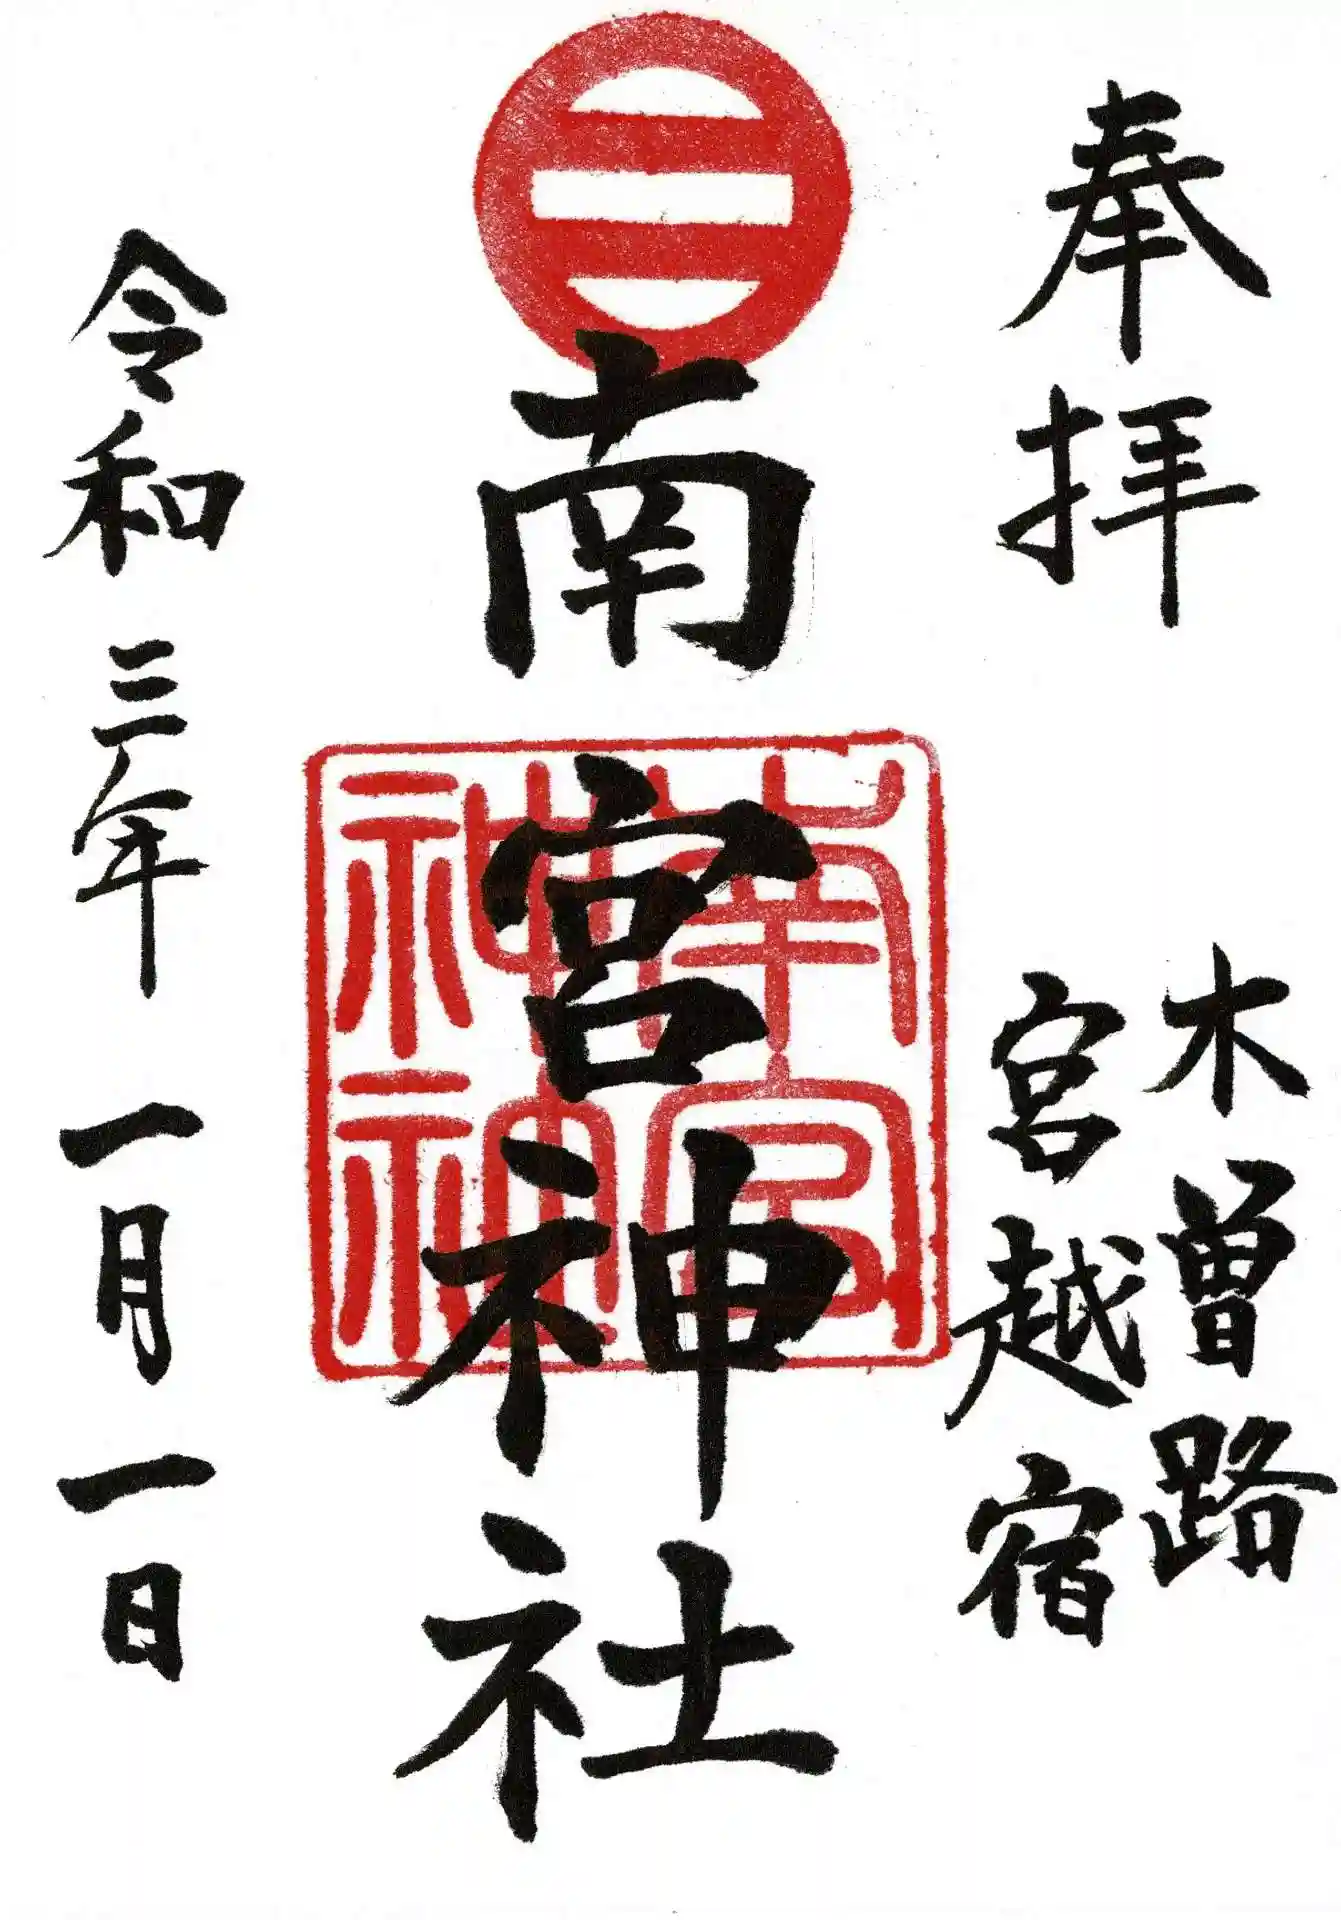 奉拝
木曽路
宮越宿
南宮神社
令和三年一月一日